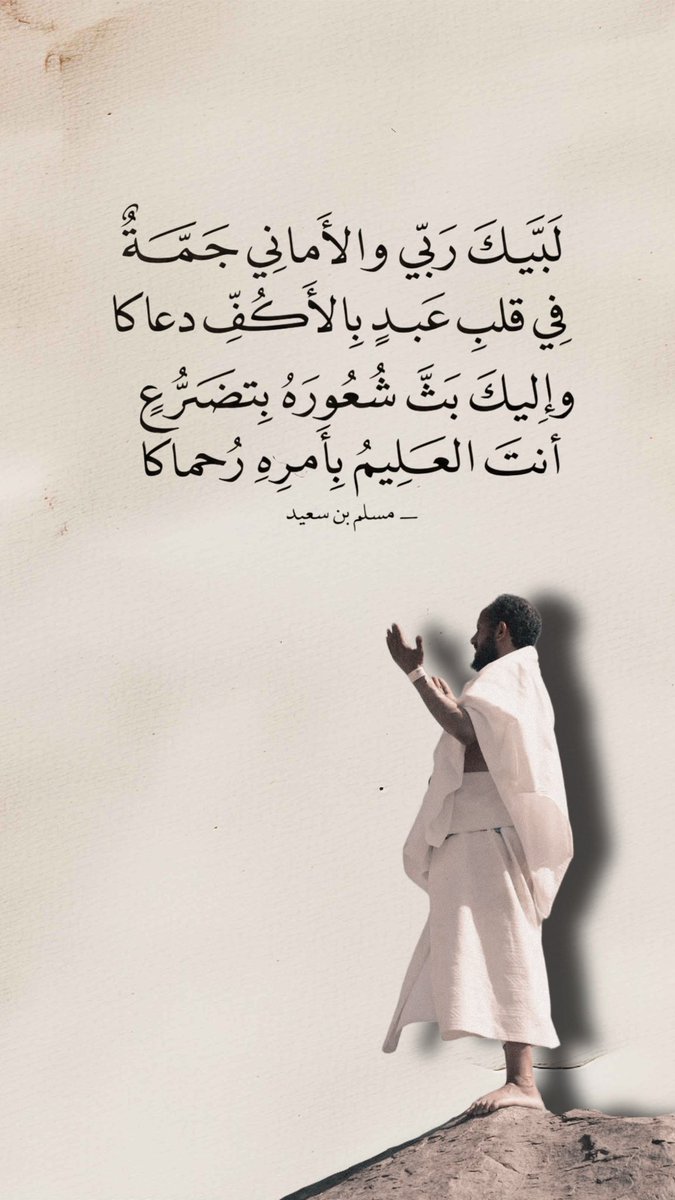 لَبَّيكَ رَبّي والأَمانِي جَمَّةٌ
فِي قلبِ عَبدٍ بِالأَكُفِّ دعاكا
وإِليكَ بَثَّ شُعُورَهُ بِتضَرُّعٍ
أنتَ العَلِيمُ بِأَمرِهِ رُحماكا
– مسلم بن سعيد